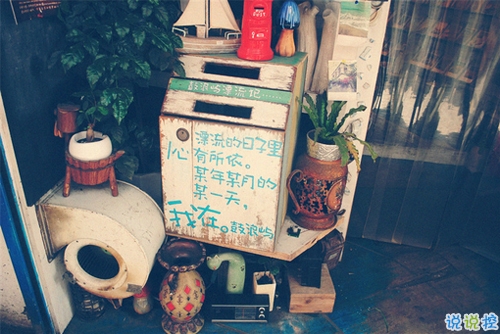 鼓浪屿漂流记……
漂流的日子里
心有所依。
某年某月的
某一天,
我在。鼓浪屿
说说控